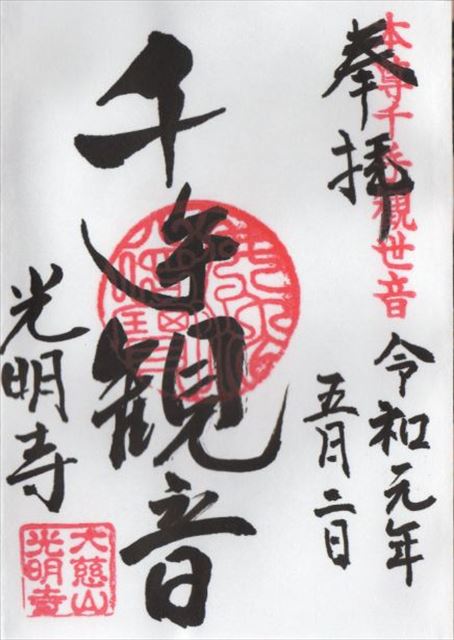 本尊千手観世音
奉拝
令和元年
五月二日
千手観音
光明寺
大慈山
光明寺